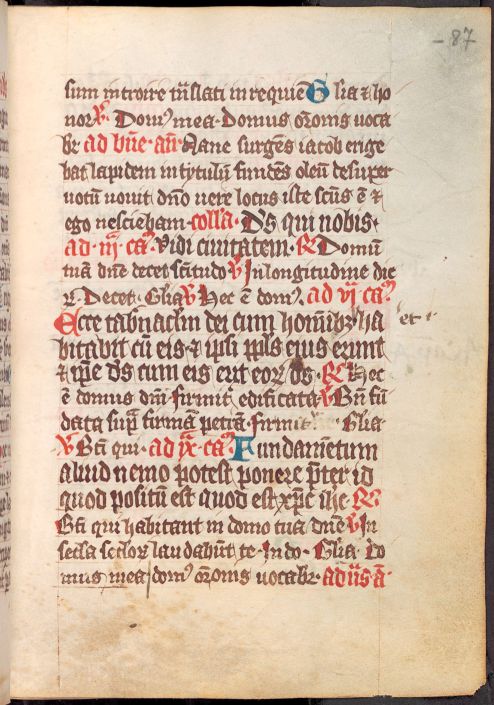 - 87
sum introire tñslati in requie Glia & ho
nor ℣ Dom⁹ mea· Domus or̃onis voca
br̃ ad bñe· añ· Mane surgẽs iacob erige
bat lapidem in tytulũ fundẽs oleũ desuper
votũ vovit dño vere locus iste scũs ẽ &
ego nesciebam· colla· Ds qui nobis·
ad· iij· ca⁹ Vidi civitatem· ℟ Domũ
tuã dñe decet sc̃itudo ℣ In longitudine die
ꝝ· Decet· Glia ℣ Hec ẽ dom⁹. ad vj ca⁹
Ecce tab̃naclm dei cum hom̃ibꝫ ha et·
bitabit cũ eis & ip̃i pp̃ls eius erunt
& ip̃e ds cum eis erit eoꝝ ds· ℟ Hec
ẽ domus dñi firmit̃ edificata ℣ Bñ fũ
data sup̃ firmã petrã· Firmit̃ Glia
℣ Bti qui· ad ix· ca⁹ Fundam̃etum
aliud nemo potest ponere p̃ter id
quod positũ est quod est xp̃c ihc ℟
Bti qui habitant in domo tua dñe ℣ In
sec̃la sec̃loꝝ laudabũt te· In do· Glia Do
mus mea dom⁹ or̃onis vocabr̃· ad ijs a͂